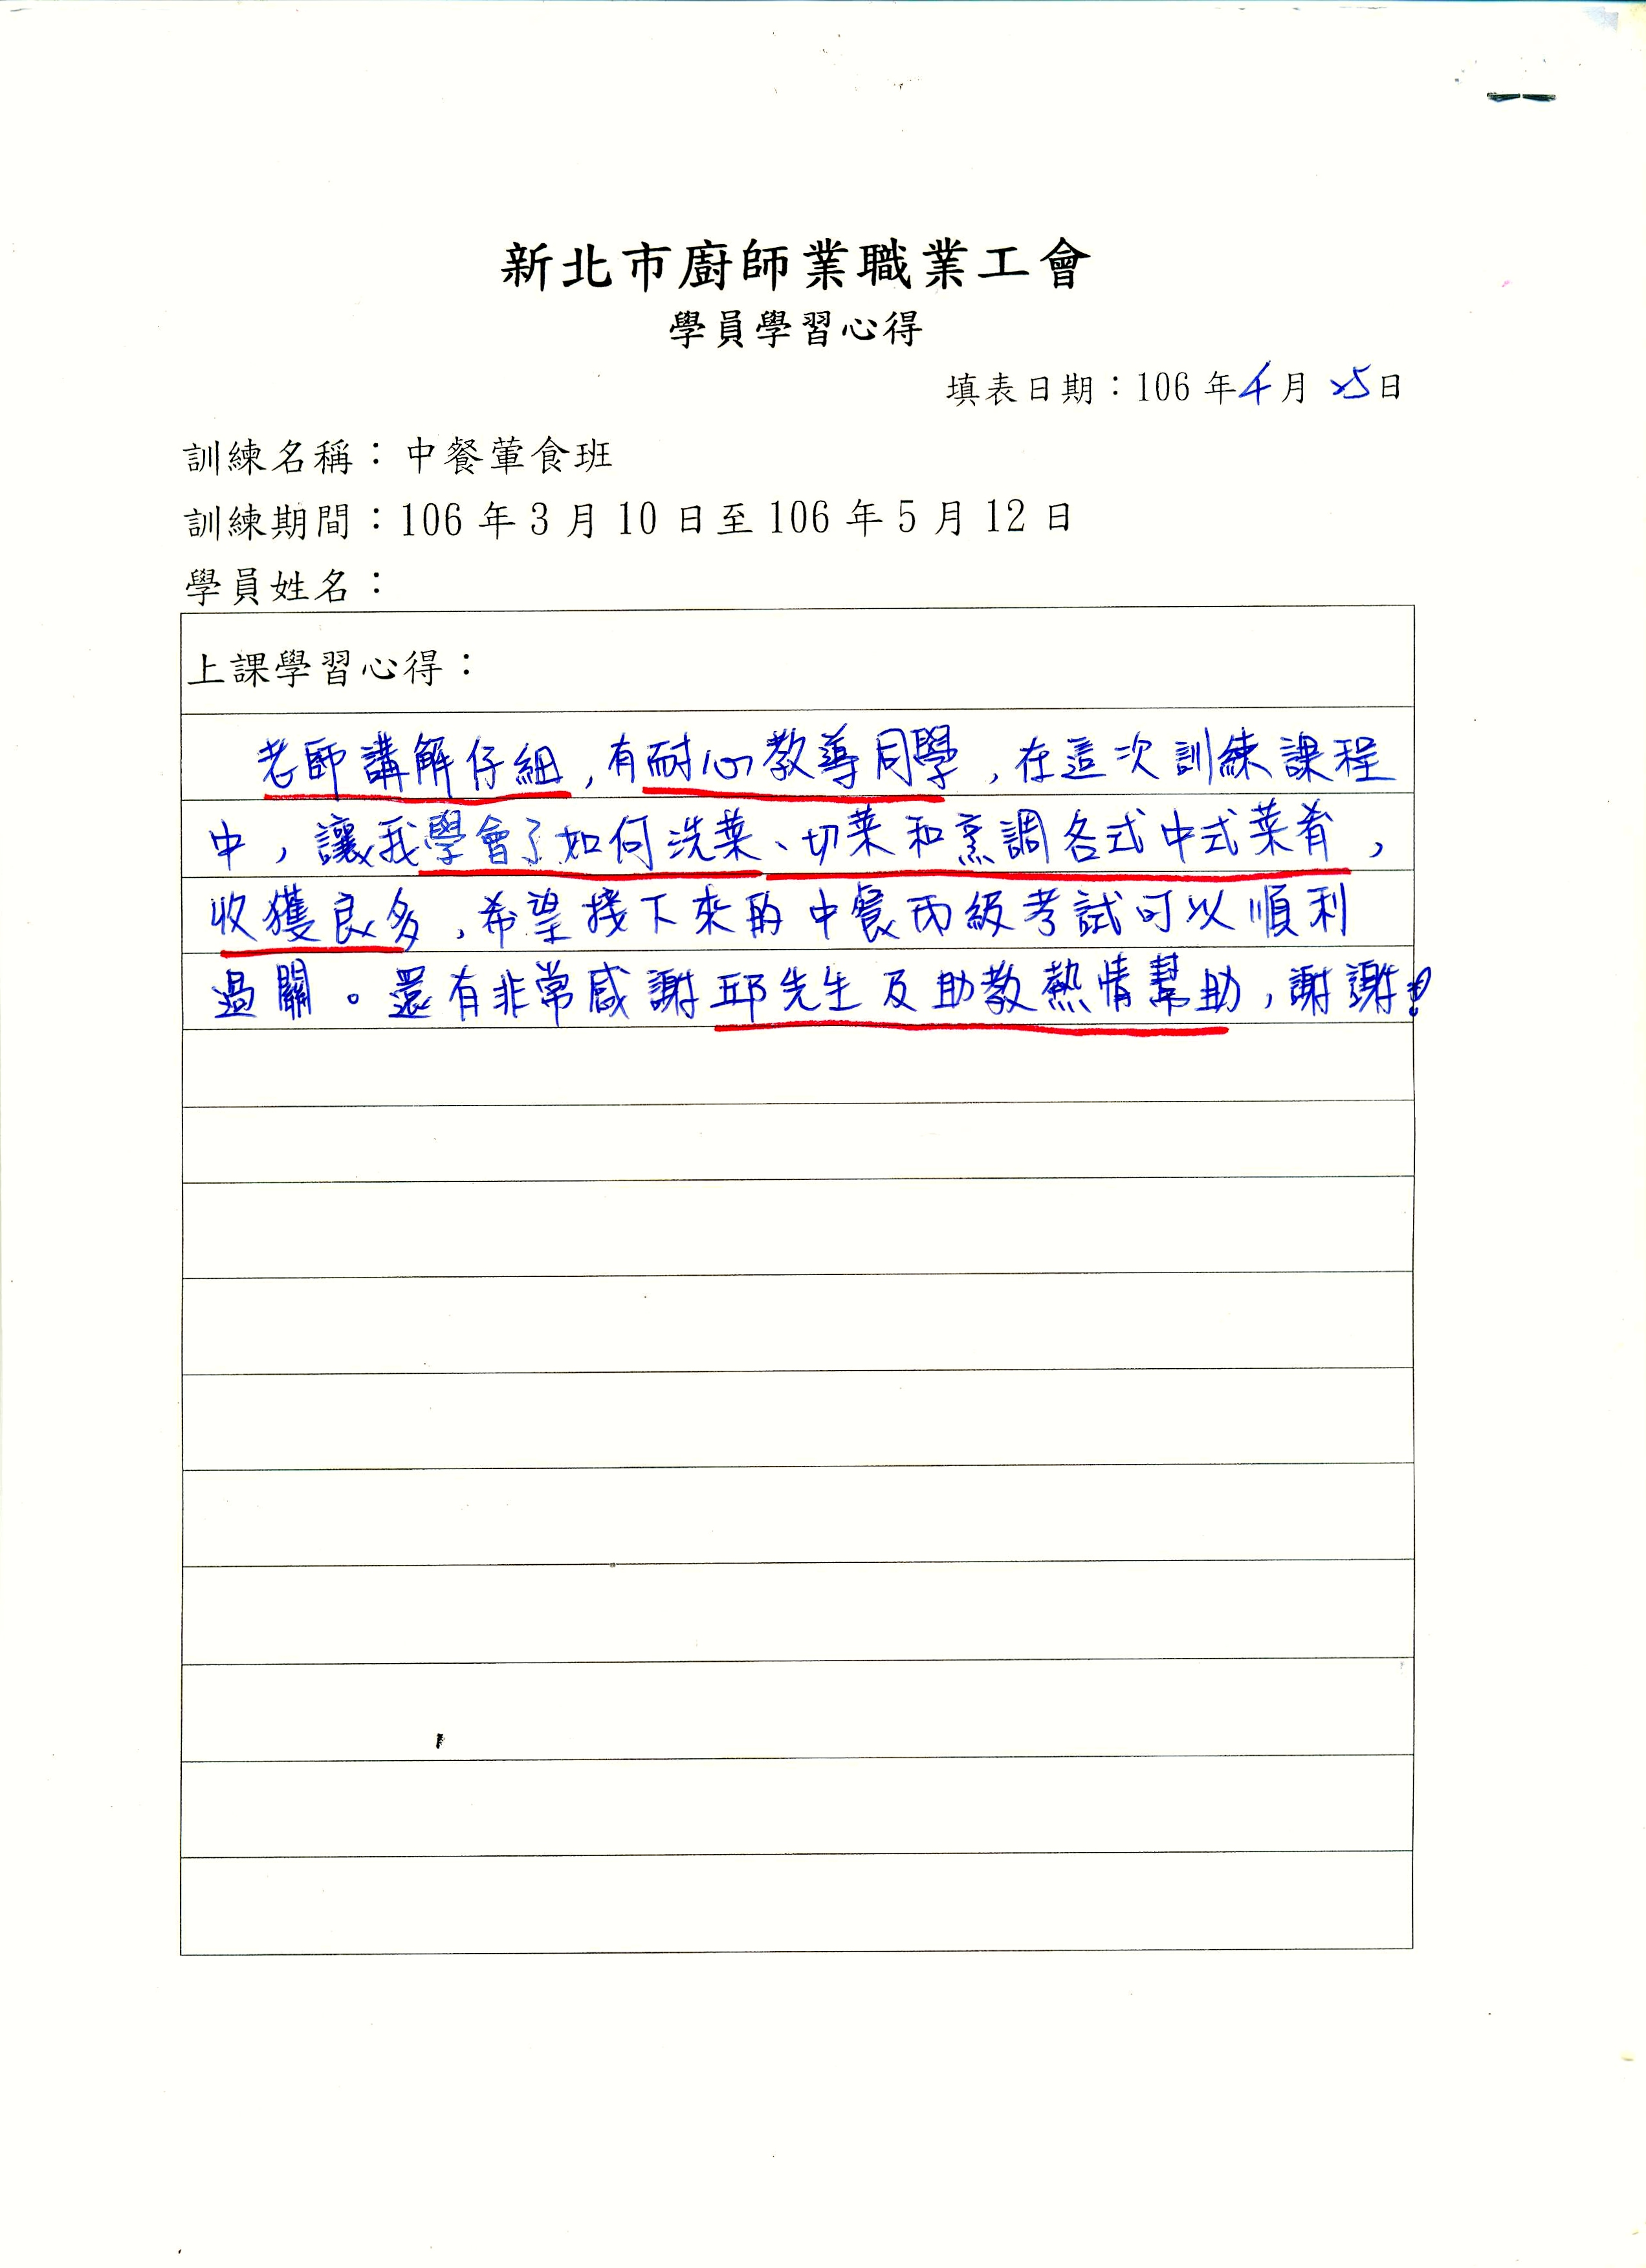 新北市廚師業職業工會
學員學習心得
填表日期：106年4月25日
訓練名稱：中餐葷食班
訓練期間：106年3月10日至106年5月12日
學員姓名：
上課學習心得：
老師講解仔細，有耐心教導同學，在這次訓練課程
中，讓我學會了如何洗菜、切菜和烹調各式中式菜肴，
收獲良多，希望接下來的中餐丙級考試可以順利
過關。還有非常感謝邱先生及助教熱情幫助，謝謝！